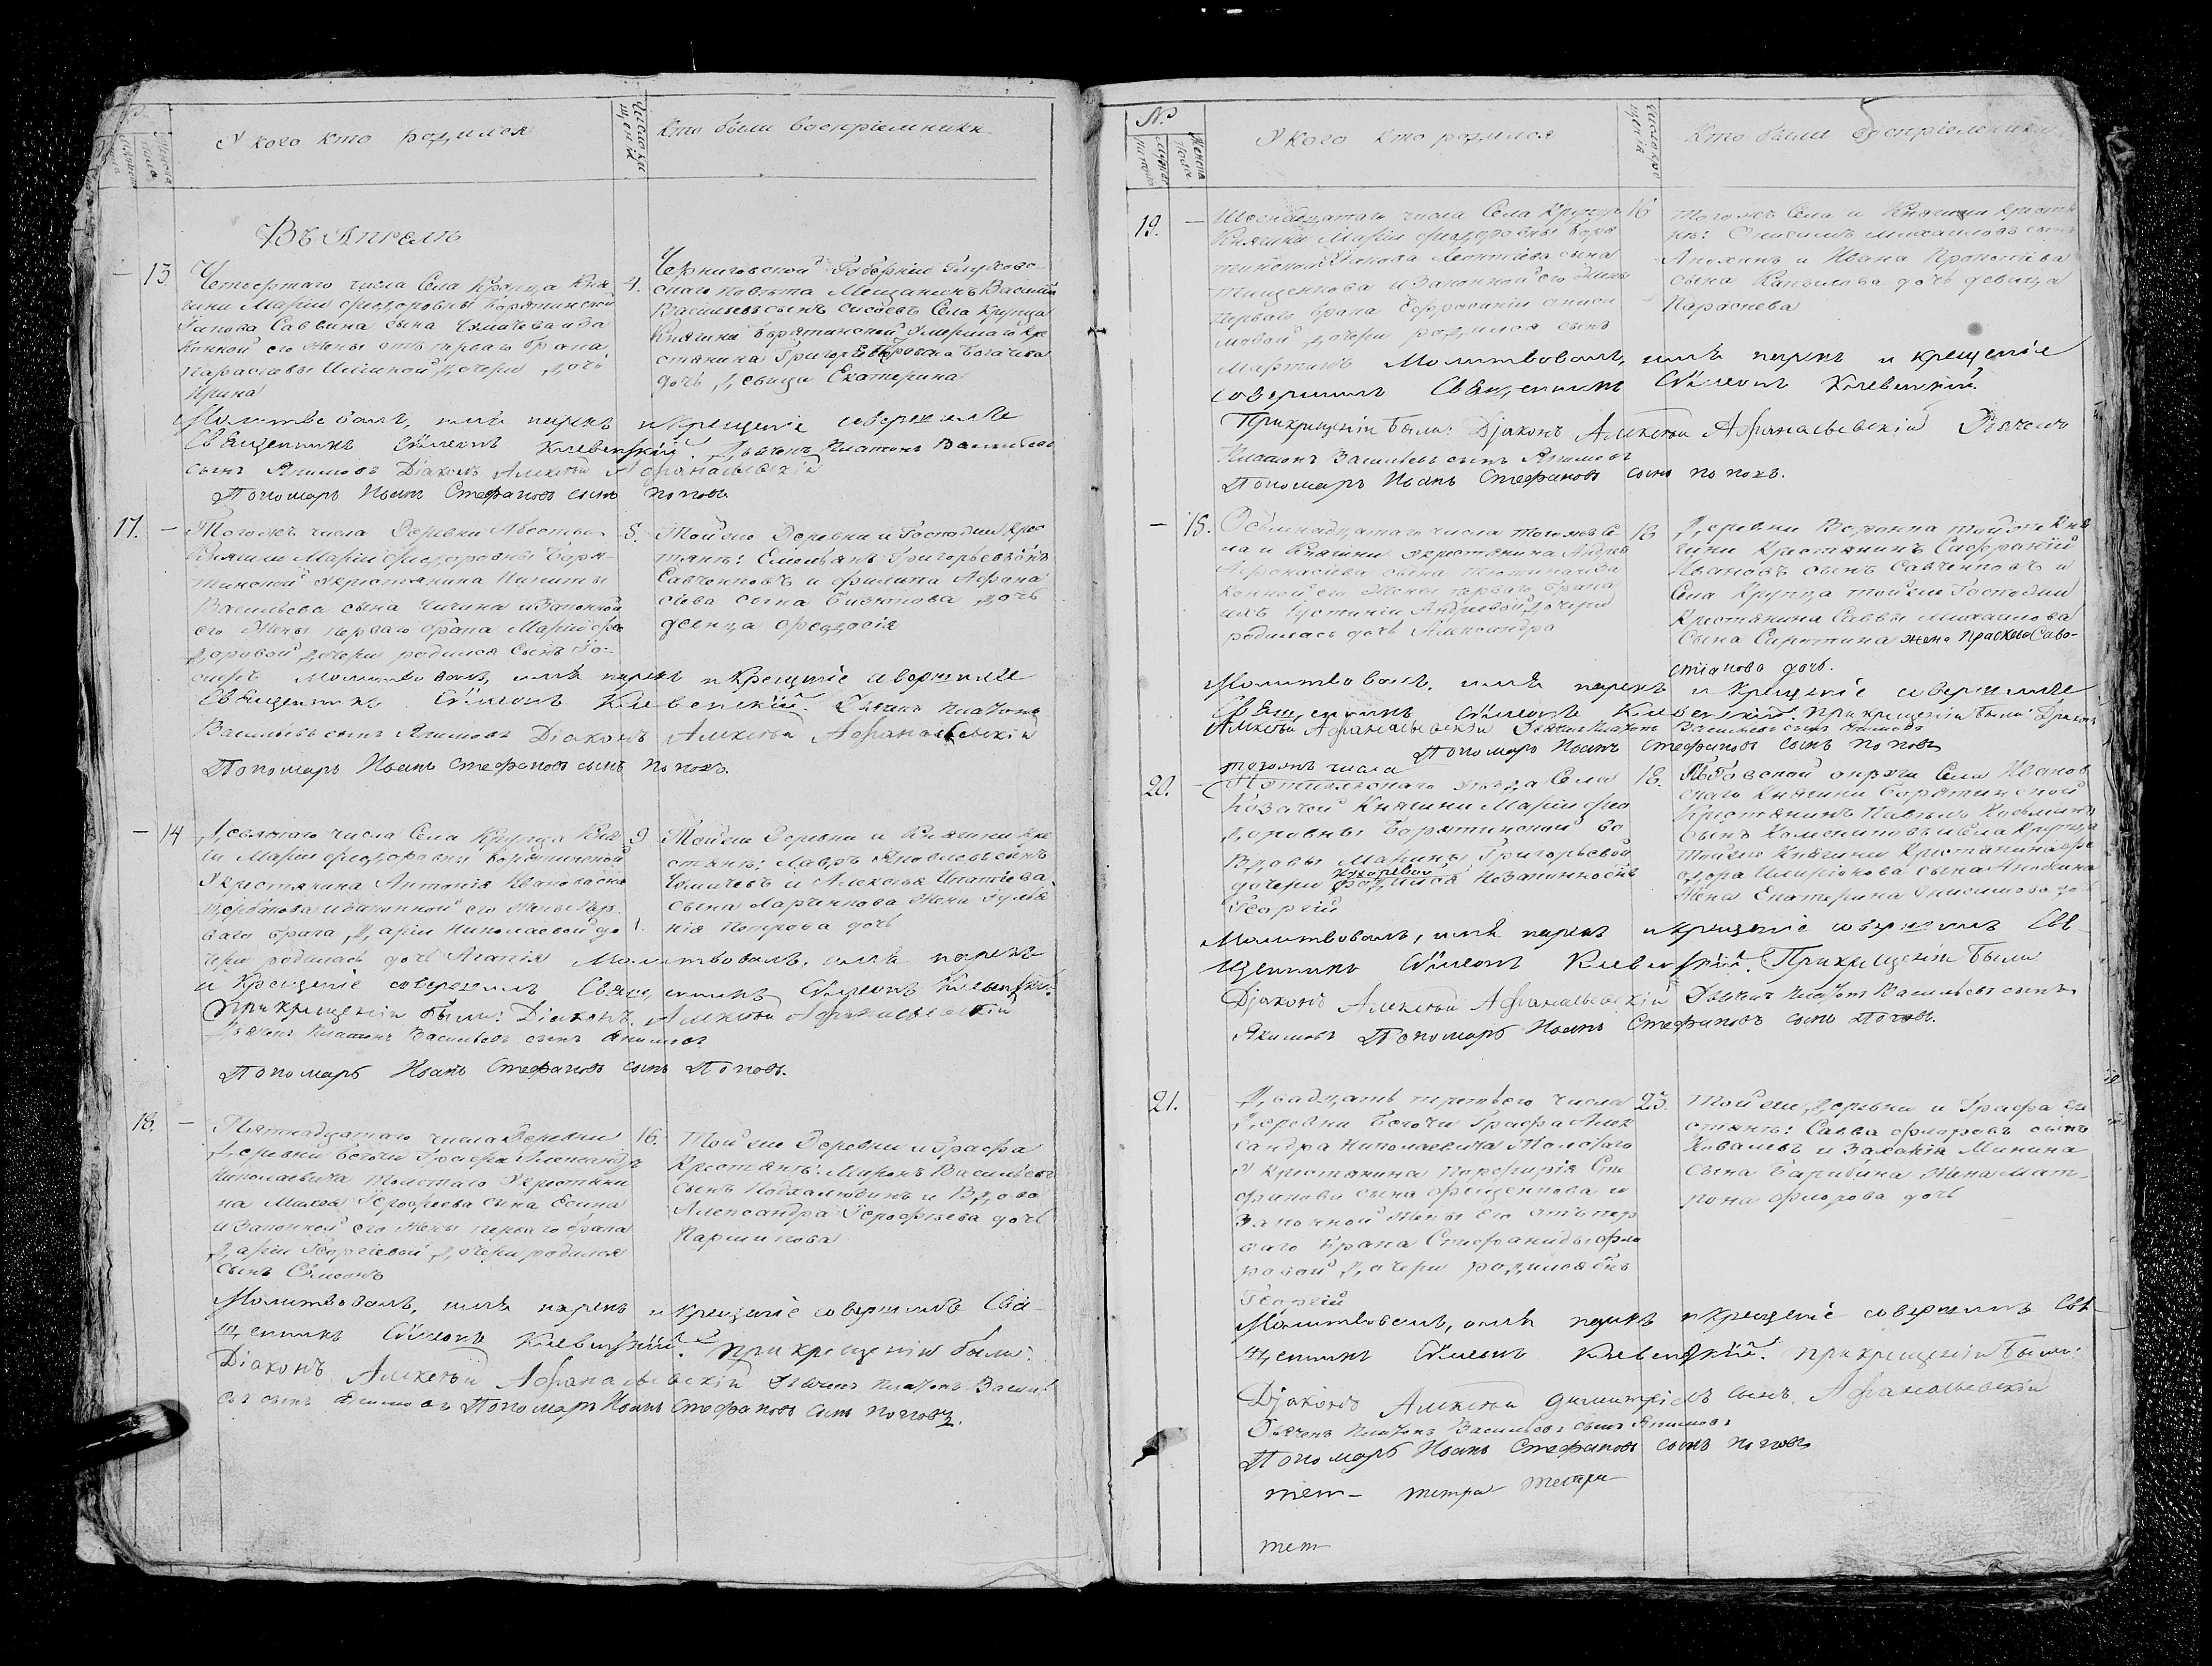 №
Мужска
пола
Женска
У кого кто родился
Число кре
щенія
Кто были воспріемники
Въ Апрелѣ
13
Четвертаго числа Села Крупца Кня
гини Маріи Фиодоровны Борятинской
Іакова Саввина сына Чумачева и за
конной его жены отъ перваго брака
Параскевы дочери дочь
Ирина
4.
Черниговской Губерніи Глухов-
скаго Повѣта Мещанинъ Василій
Васильевъ сынъ Сисоевъ Села Крупца
Княгини Борятинской Умершаго кре
стянина Григорія Богачева
дочь девица Екатерина
Молитвовалъ, имя нарекъ и Крещеніе совершилъ
Священникъ Сѵмеонъ Клевенскій. Дьячекъ Платонъ Васильевъ
сынъ Якимовъ Діаконъ Алексѣй Афанасьевскій
Пономарь Иванъ Стефановъ сынъ Поповъ.
17.
Тогожъ числа Деревни
Княгини Маріи Фиодоровны Боря-
тинской Укрестянина Никиты
Васильева сына Чичина и Законной
его Жены перваго брака Маріи Фео
доровой дочери родился Сынъ Іо-
сифъ
5.
Тойже Деревни и Госпожи Крес
тянъ: Емельянъ Григорьевъ сынъ
Савченковъ и Филипа Афана
сіева сына Бизюкова дочь
девица Феодосія
Молитвовалъ, имя нарекъ и Крещеніе совершилъ
Священникъ Сѵмеонъ Клевенскій. Дьячекъ Платонъ
Васильевъ сынъ Якимовъ Діаконъ Алексѣй Афанасьевскій
Пономарь Иванъ Стефановъ сынъ Поповъ.
14
Девятаго числа Села Крупца Княг
и Маріи Фиодоровны Борятинской
Укрестянина Антонія Иванова сына
Щербакова и Законной его Жены пер
ваго брака Даріи Николаевой до
чери родилась дочь Агапія
9
Тойже Деревни и Княгини Кре
стянъ: Лавръ Яковлевъ сынъ
Чумачевъ и Алексѣя Игнатіева
сына Ларченкова Жена Гулья
нія Петрова дочь
Молитвовалъ, имя нарекъ
и Крещеніе совершилъ Священникъ Сѵмеонъ Клевенскій.
При крещеніи были: Діаконъ Алексѣй Афанасьевскій
Дьячекъ Платонъ Васильевъ сынъ Якимовъ
Пономарь Иванъ Стефановъ сынъ Поповъ.
18.
Пятнадцатаго числа Деревни
Деревни Бегочи Графа Александра
Николаевича Толстаго Укрестяни
на Михея Герофеева сына Есина
и Законной его Жены перваго брака
Даріи Георгіевой дочери родился
сынъ Сѵмеонъ
16.
Тойже Деревни и Графа
Крестянъ: Маронъ Васильевъ
сынъ Подхалюзинъ и Вдова
Александра Герофеева дочь
Паршикова
Молитвовалъ, имя нарекъ и крещеніе совершилъ Свя-
щенникъ Сѵмеонъ Клевенскій. При крещеніи были:
Діаконъ Алексѣй Афанасьевскій Дьячекъ Платонъ Василь
евъ сынъ Якимовъ Пономарь Иванъ Стефановъ сынъ Поповъ.
№
Мужска
пола
Женска
пола
У кого кто родился
Число кре
щенія
Кто были воспріемники
5
19.
Шеснадцатаго числа Села Крупца
Княгини Маріи Фиодоровны Боря
тинской Іакова Леонтіева сына
Тищенкова и Законной его Жены
перваго брака Ефросиніи Ониси
мовой дочери родился сынъ
Мартинъ
16
Тогожъ Села и Княгини крестя
нъ: Онисимъ Михаиловъ сынъ
Анохинъ и Ивана Прокопіева
сына дочь девица
Параскева
Молитвовалъ, имя нарекъ и крещеніе
совершилъ Священникъ Сѵмеонъ Клевенскій.
При крещеніи были: Діаконъ Алексѣй Афанасьевскій Дьячекъ
Платонъ Васильевъ сынъ Якимовъ
Пономарь Иванъ Стефановъ сынъ Поповъ.
15.
Осьмнадцатаго числа тогожъ Се
ла и Княгини Укрестянина Андрея
Афанасіева сына и За
конной его Жены перваго брака
ихъ Устиніи Андреевой дочери
родилась дочь Александра
18
Деревни Воронка тойже Кня
гини Крестянинъ Сафроній
Ивановъ сынъ Савченковъ и
Села Крупца тойже Госпожи
Крестянина Саввы Михаилова
Сына Сиротина жена Праскева Сава-
стіанова дочь.
Молитвовалъ, имя нарекъ и Крещеніе совершилъ
Священникъ Сѵмеонъ Клевенскій. При крещеніи были: Діаконъ
Алексѣй Афанасьевскій Дьячекъ Платонъ Васильевъ сынъ Якимовъ
Пономарь Иванъ Стефановъ сынъ Поповъ
20.
тогожъ числа
Путивльскаго уѣзда Села
Козачой Княгини Маріи Фио
доровны Борятинской Во
Вдовы Марины Григорьевой
дочери родился незаконносынъ
Георгій
18.
Льговской округи Села Иванов
скаго Княгини Борятинской
Крестянинъ Павелъ Кузьминъ
сынъ и Села Крупца
Тойже Княгини Крестянина Фе
одора Иларіонова сына Анохина
Жена Екатерина Анисимова дочь
Молитвовалъ, имя нарекъ и крещеніе совершилъ Свя-
щенникъ Сѵмеонъ Клевенскій. При крещеніи были
Діаконъ Алексѣй Афанасьевскій Дьячекъ Платонъ Васильевъ сынъ
Якимовъ Пономарь Иванъ Стефановъ сынъ Поповъ.
21.
Двадцать третьего числа
Деревни Бегочи Графа Алек
сандра Николаевича Толстаго
У крестянина Порфирія Сте
фанова сына Фищенкова и
Законной Жены Его отъ пер
ваго брака Стефаниды Фло
ровой дочери родился снъ
Георгій
23.
Тойже Деревни и Графа кре
стянъ: Савва Флоровъ сынъ
Ковалевъ и Захарія Минина
сына Барибина Жена Мат-
рона Флорова дочь
Молитвовалъ, имя нарекъ и Крещеніе совершилъ Свя-
щенникъ Сѵмеонъ Клевенскій. При крещеніи были:
Діаконъ Алексѣй Димитріевъ сынъ Афанасьевскій
Дьячекъ Платонъ Васильевъ сынъ Якимовъ
Пономарь Иванъ Стефановъ сынъ Поповъ
тет- тетра тетра
тет